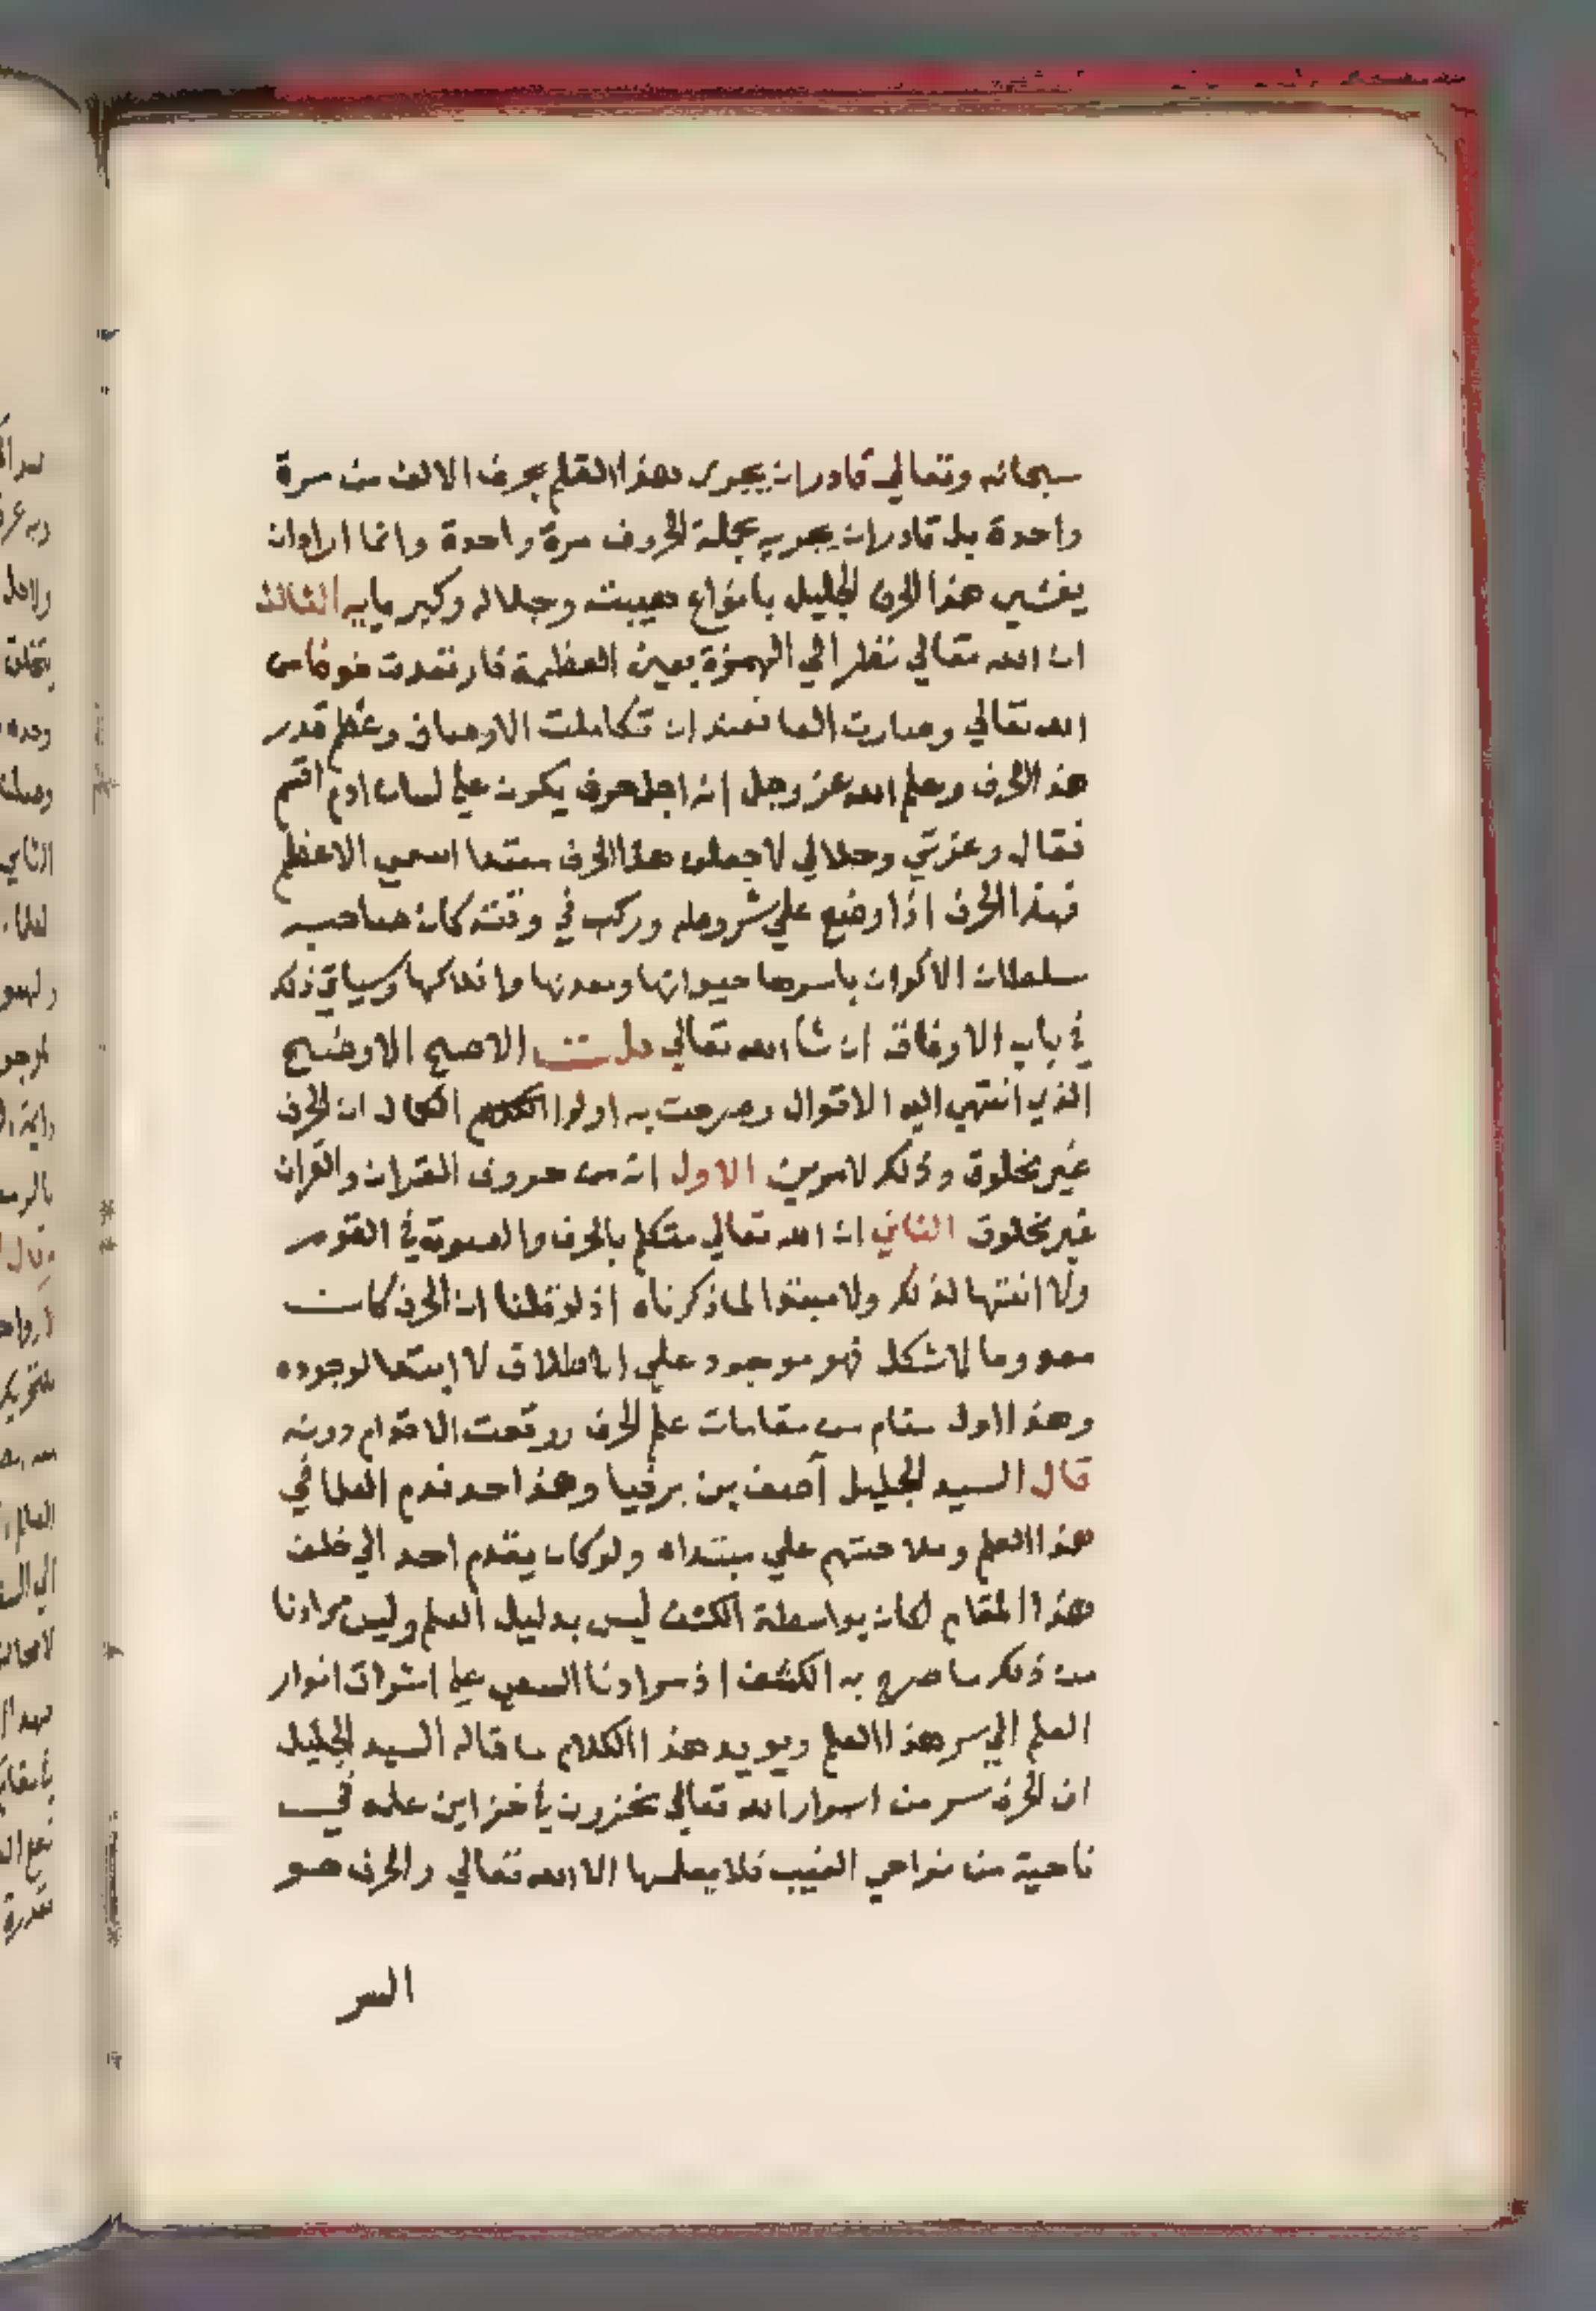 سبحانه وتعالي قادر ان يجري هذا القلم بحرف الالف من مرة
واحدة بل قادر ان يجريه بجملة الحروف مرة واحدة وانما اراد ان
يغشي هذا الحرف الجليل بانواع هيبته وجلاله وكبريايه الثالث
ان الله تعالي نظر الي الهمزة بعين العظمة فارتعدت خوفا من
الله تعالي وصارت الفا فعند ان تكاملت الاوصاف وعظم قدر
هذا الحرف وعلم الله عز وجل انه اجل حرف يكون علي لسان ادم اقسم
فقال وعزتي وجلالي لاجعلن هذا الحرف مبتدا اسمي الاعظم
فهذا الحرف اذا وضع علي شروطه وركب في وقته كان صاحبه
سلطان الاكوان باسرها حيوانها ومعدنها وافلاكها وسياتي ذلك
في باب الاوفاق ان شا الله تعالي قلت الاصح الاوضح
الذي انتهي اليه الاقوال وصرحت به اولوا الكلام الكمال ان الحرف
غير مخلوق وذلك لامرين الاول انه من حروف القران والقران
غير مخلوق الثاني ان الله تعالي متكلم بالحرف والصوت في القوم
ولا انتها لذلك ولا مبتدا لما ذكرناه اذ لو قلنا ان الحرف كان
معدوما لاشكل فهو موجود علي الاطلاق لا ابتدا لوجوده
وهذا اول مقام من مقامات علم الحرف ووقعت الاقوام دونه
قال السيد الجليل آصف بن برخيا وهذا حد قدم العلما في
هذا العلم وملاحتهم علي مبتداه ولو كان يقدم احد الي خلف
هذا المقام لكان بواسطة الكشف ليس بدليل العلم وليس مرادنا
من ذلك ما صرح به الكشف اذ مرادنا السعي علي اشراق انوار
العلم الي سر هذا العلم ويويد هذا الكلام ما قاله السيد الجليل
ان الحرف سر من اسرار الله تعالي مخزون بأخزاين علمه في
ناحية من نواحي الغيب فلا يعلمها الا الله تعالي والحرف هو
السر